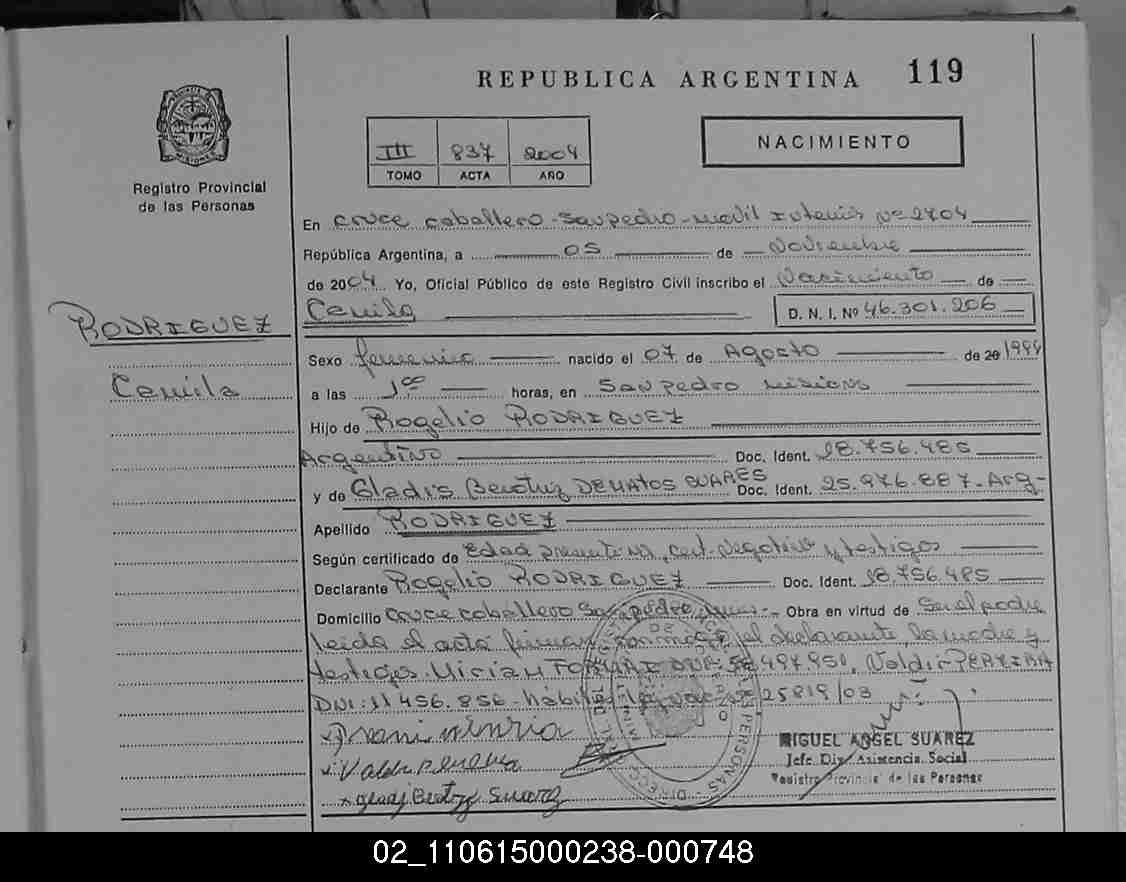 REPUBLICA ARGENTINA 119
III 837 2004
TOMO ACTA AÑO
NACIMIENTO
Registro Provincial
de las Personas
En Cruce caballero - San pedro - movil Nº 2704
República Argentina, a 05 de Noviembre
de 2004 Yo, Oficial Público de este Registro Civil inscribo el Nacimiento de
Camila D. N. I. Nº 46.301.206
RODRIGUEZ
Camila
Sexo femenino nacido el 07 de Agosto de 20 1999
a las 1 00 horas, en San pedro misiones
Hijo de Rogelio RODRIGUEZ
Argentino Doc. Ident. 18.756.485
y de Gladis Beatriz DEMATOS SUARES Doc. Ident. 25.976.887 - Arg -
Apellido RODRIGUEZ
Según certificado de Edad presunta cert. negativo y testigos
Declarante Rogelio RODRIGUEZ Doc. Ident. 18.756.485
Domicilio Cruce caballero San pedro Obra en virtud de Ser el padre
leida el acta firman conmigo el declarante, la madre y
testigos. Miriam DNI: 497.950, Valdir PEREIRA
DNI: 11456.856 - 25819/03
Valdir Pereira
Beatriz Suarez
MIGUEL ANGEL SUAREZ
Jefe Div. Asistencia Social
Registro Provincial de las Personas
02_110615000238-000748